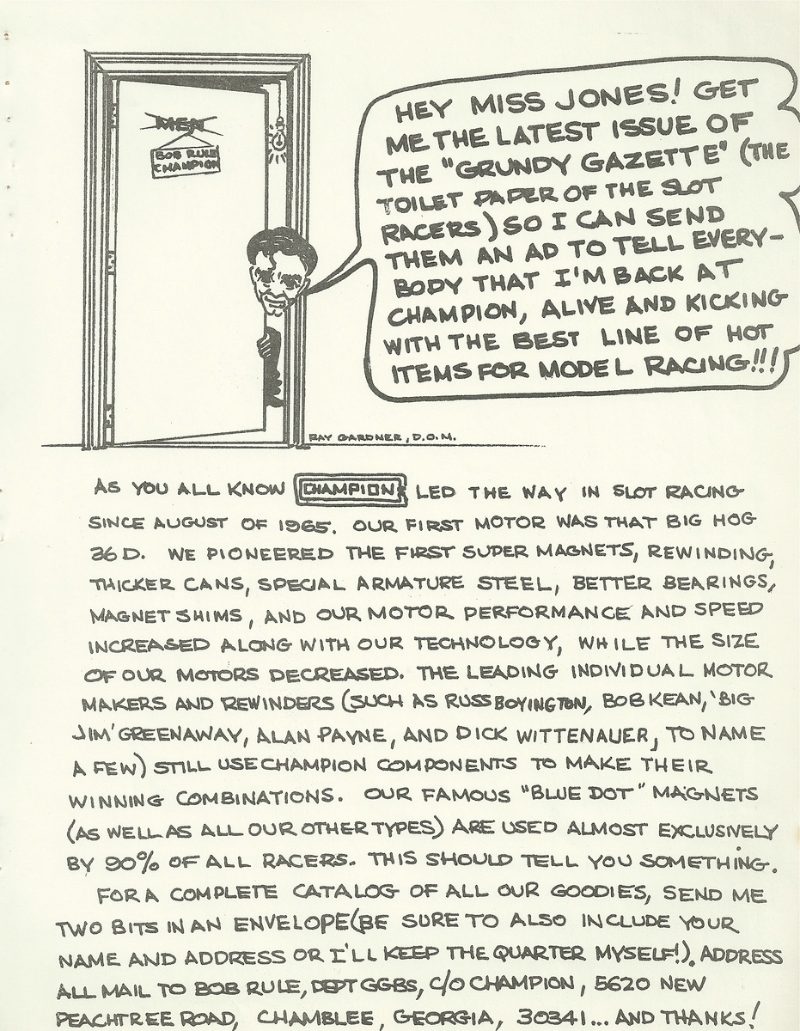 MEN
BOB RULE
CHAMPION
HEY MISS JONES! GET
ME THE LATEST ISSUE OF
THE "GRUNDY GAZETTE" (THE
TOILET PAPER OF THE SLOT
RACERS) SO I CAN SEND
THEM AN AD TO TELL EVERY-
BODY THAT I'M BACK AT
CHAMPION, ALIVE AND KICKING
WITH THE BEST LINE OF HOT
ITEMS FOR MODEL RACING!!!
RAY GARDNER, D.O.M.
AS YOU ALL KNOW CHAMPION LED THE WAY IN SLOT RACING
SINCE AUGUST OF 1965. OUR FIRST MOTOR WAS THAT BIG HOG
36D. WE PIONEERED THE FIRST SUPER MAGNETS, REWINDING,
THICKER CANS, SPECIAL ARMATURE STEEL, BETTER BEARINGS,
MAGNET SHIMS, AND OUR MOTOR PERFORMANCE AND SPEED
INCREASED ALONG WITH OUR TECHNOLOGY, WHILE THE SIZE
OF OUR MOTORS DECREASED. THE LEADING INDIVIDUAL MOTOR
MAKERS AND REWINDERS (SUCH AS RUSS BOYINGTON, BOB KEAN, 'BIG
JIM' GREENAWAY, ALAN PAYNE, AND DICK WITTENAUER, TO NAME
A FEW) STILL USE CHAMPION COMPONENTS TO MAKE THEIR
WINNING COMBINATIONS. OUR FAMOUS "BLUE DOT" MAGNETS
(AS WELL AS ALL OUR OTHER TYPES) ARE USED ALMOST EXCLUSIVELY
BY 90% OF ALL RACERS. THIS SHOULD TELL YOU SOMETHING.
FOR A COMPLETE CATALOG OF ALL OUR GOODIES, SEND ME
TWO BITS IN AN ENVELOPE (BE SURE TO ALSO INCLUDE YOUR
NAME AND ADDRESS OR I'LL KEEP THE QUARTER MYSELF!). ADDRESS
ALL MAIL TO BOB RULE, DEPT GGBS, C/O CHAMPION, 5620 NEW
PEACHTREE ROAD, CHAMBLEE, GEORGIA, 30341... AND THANKS!